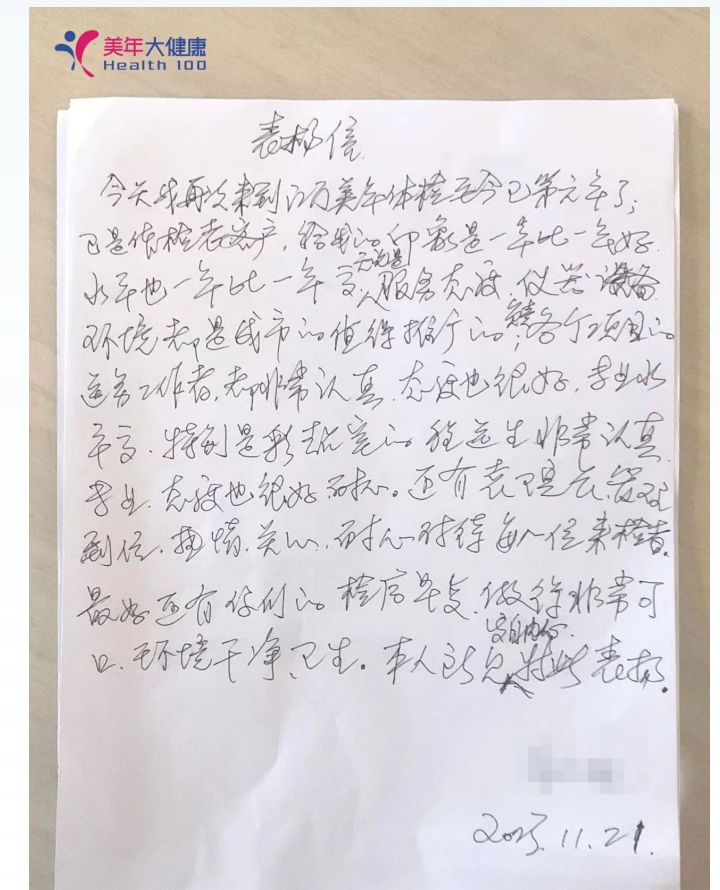 美年大健康
Health 100
表扬信
今天我再次来到江万美年体检至今已第六年了;
已是体检老客户,给我的印象是一年比一年好
水平也一年比一年高,无论是服务态度、仪器设备
环境都是我市的值得推介的;各个项目的
医务工作者,都非常认真、态度也很好,专业水
平高、特别是彩超室的 医生非常认真
专业、态度也很好耐心。还有袁 管理
到位、热情、关心、耐心对待每一位来检者。
最好还有你们的检后早点、做得非常可
口、环境干净、卫生。本人 发自内心特此表扬。
2023.11.21.